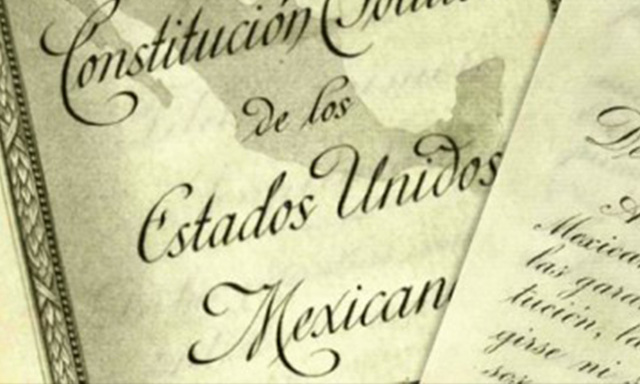 Constitución
de los
Estados Unidos
Mexican
las gara
tución, la
girse ni